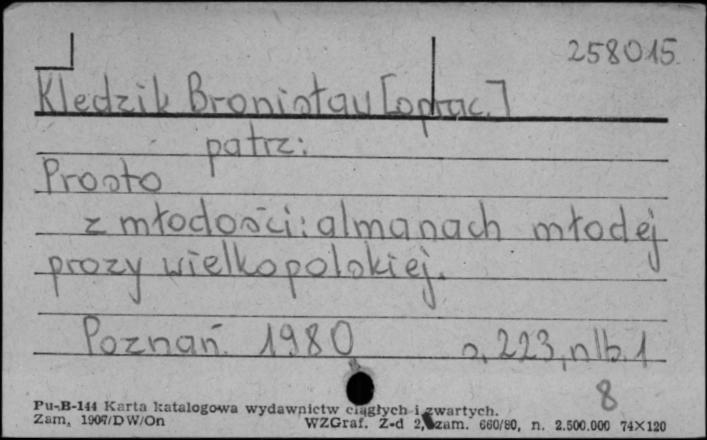 258015
Kledzik Bronisław [oprac.]
patrz:
Prosto
z młodości: almanach młodej
prozy wielkopolskiej.
Poznań. 1980 s. 223, nlb. 1
8
Pu-B-144 Karta katalogowa wydawnictw ciągłych i zwartych.
Zam, 1907/DW/On WZGraf. Z-d 2, zam. 660/80, n. 2.500.000 74X120